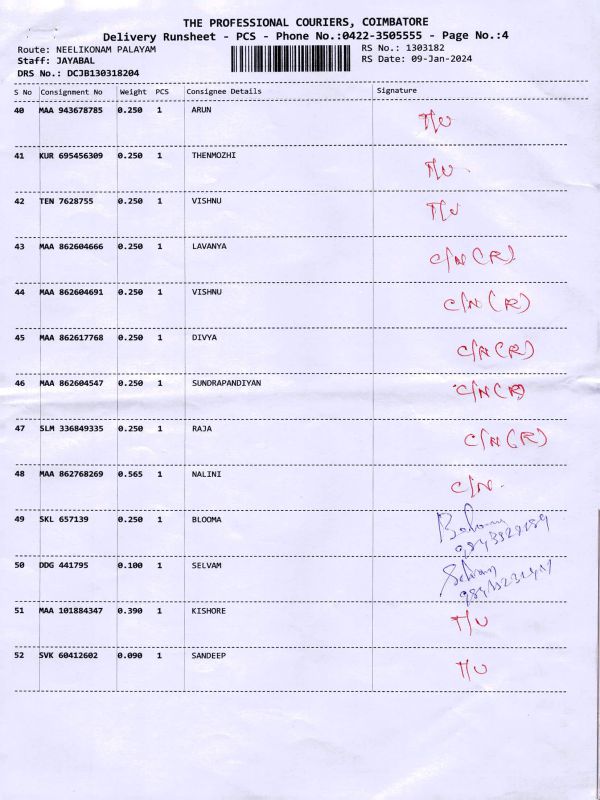 THE PROFESSIONAL COURIERS, COIMBATORE
Delivery Runsheet - PCS - Phone No.:0422-3505555 - Page No.:4
Route: NEELIKONAM PALAYAM
RS No.: 1303182
Staff: JAYABAL
RS Date: 09-Jan-2024
DRS No.: DCJB130318204
S No Consignment No Weight PCS Consignee Details Signature
40 MAA 943678785 0.250 1 ARUN T/U
41 KUR 695456309 0.250 1 THENMOZHI T/U
42 TEN 7628755 0.250 1 VISHNU T/U
43 MAA 862604666 0.250 1 LAVANYA C/N (R)
44 MAA 862604691 0.250 1 VISHNU C/N (R)
45 MAA 862617768 0.250 1 DIVYA C/N (R)
46 MAA 862604547 0.250 1 SUNDRAPANDIYAN C/N (R)
47 SLM 336849335 0.250 1 RAJA C/N (R)
48 MAA 862768269 0.565 1 NALINI C/N.
49 SKL 657139 0.250 1 BLOOMA
50 DDG 441795 0.100 1 SELVAM
51 MAA 101884347 0.390 1 KISHORE T/U
52 SVK 60412602 0.090 1 SANDEEP T/U